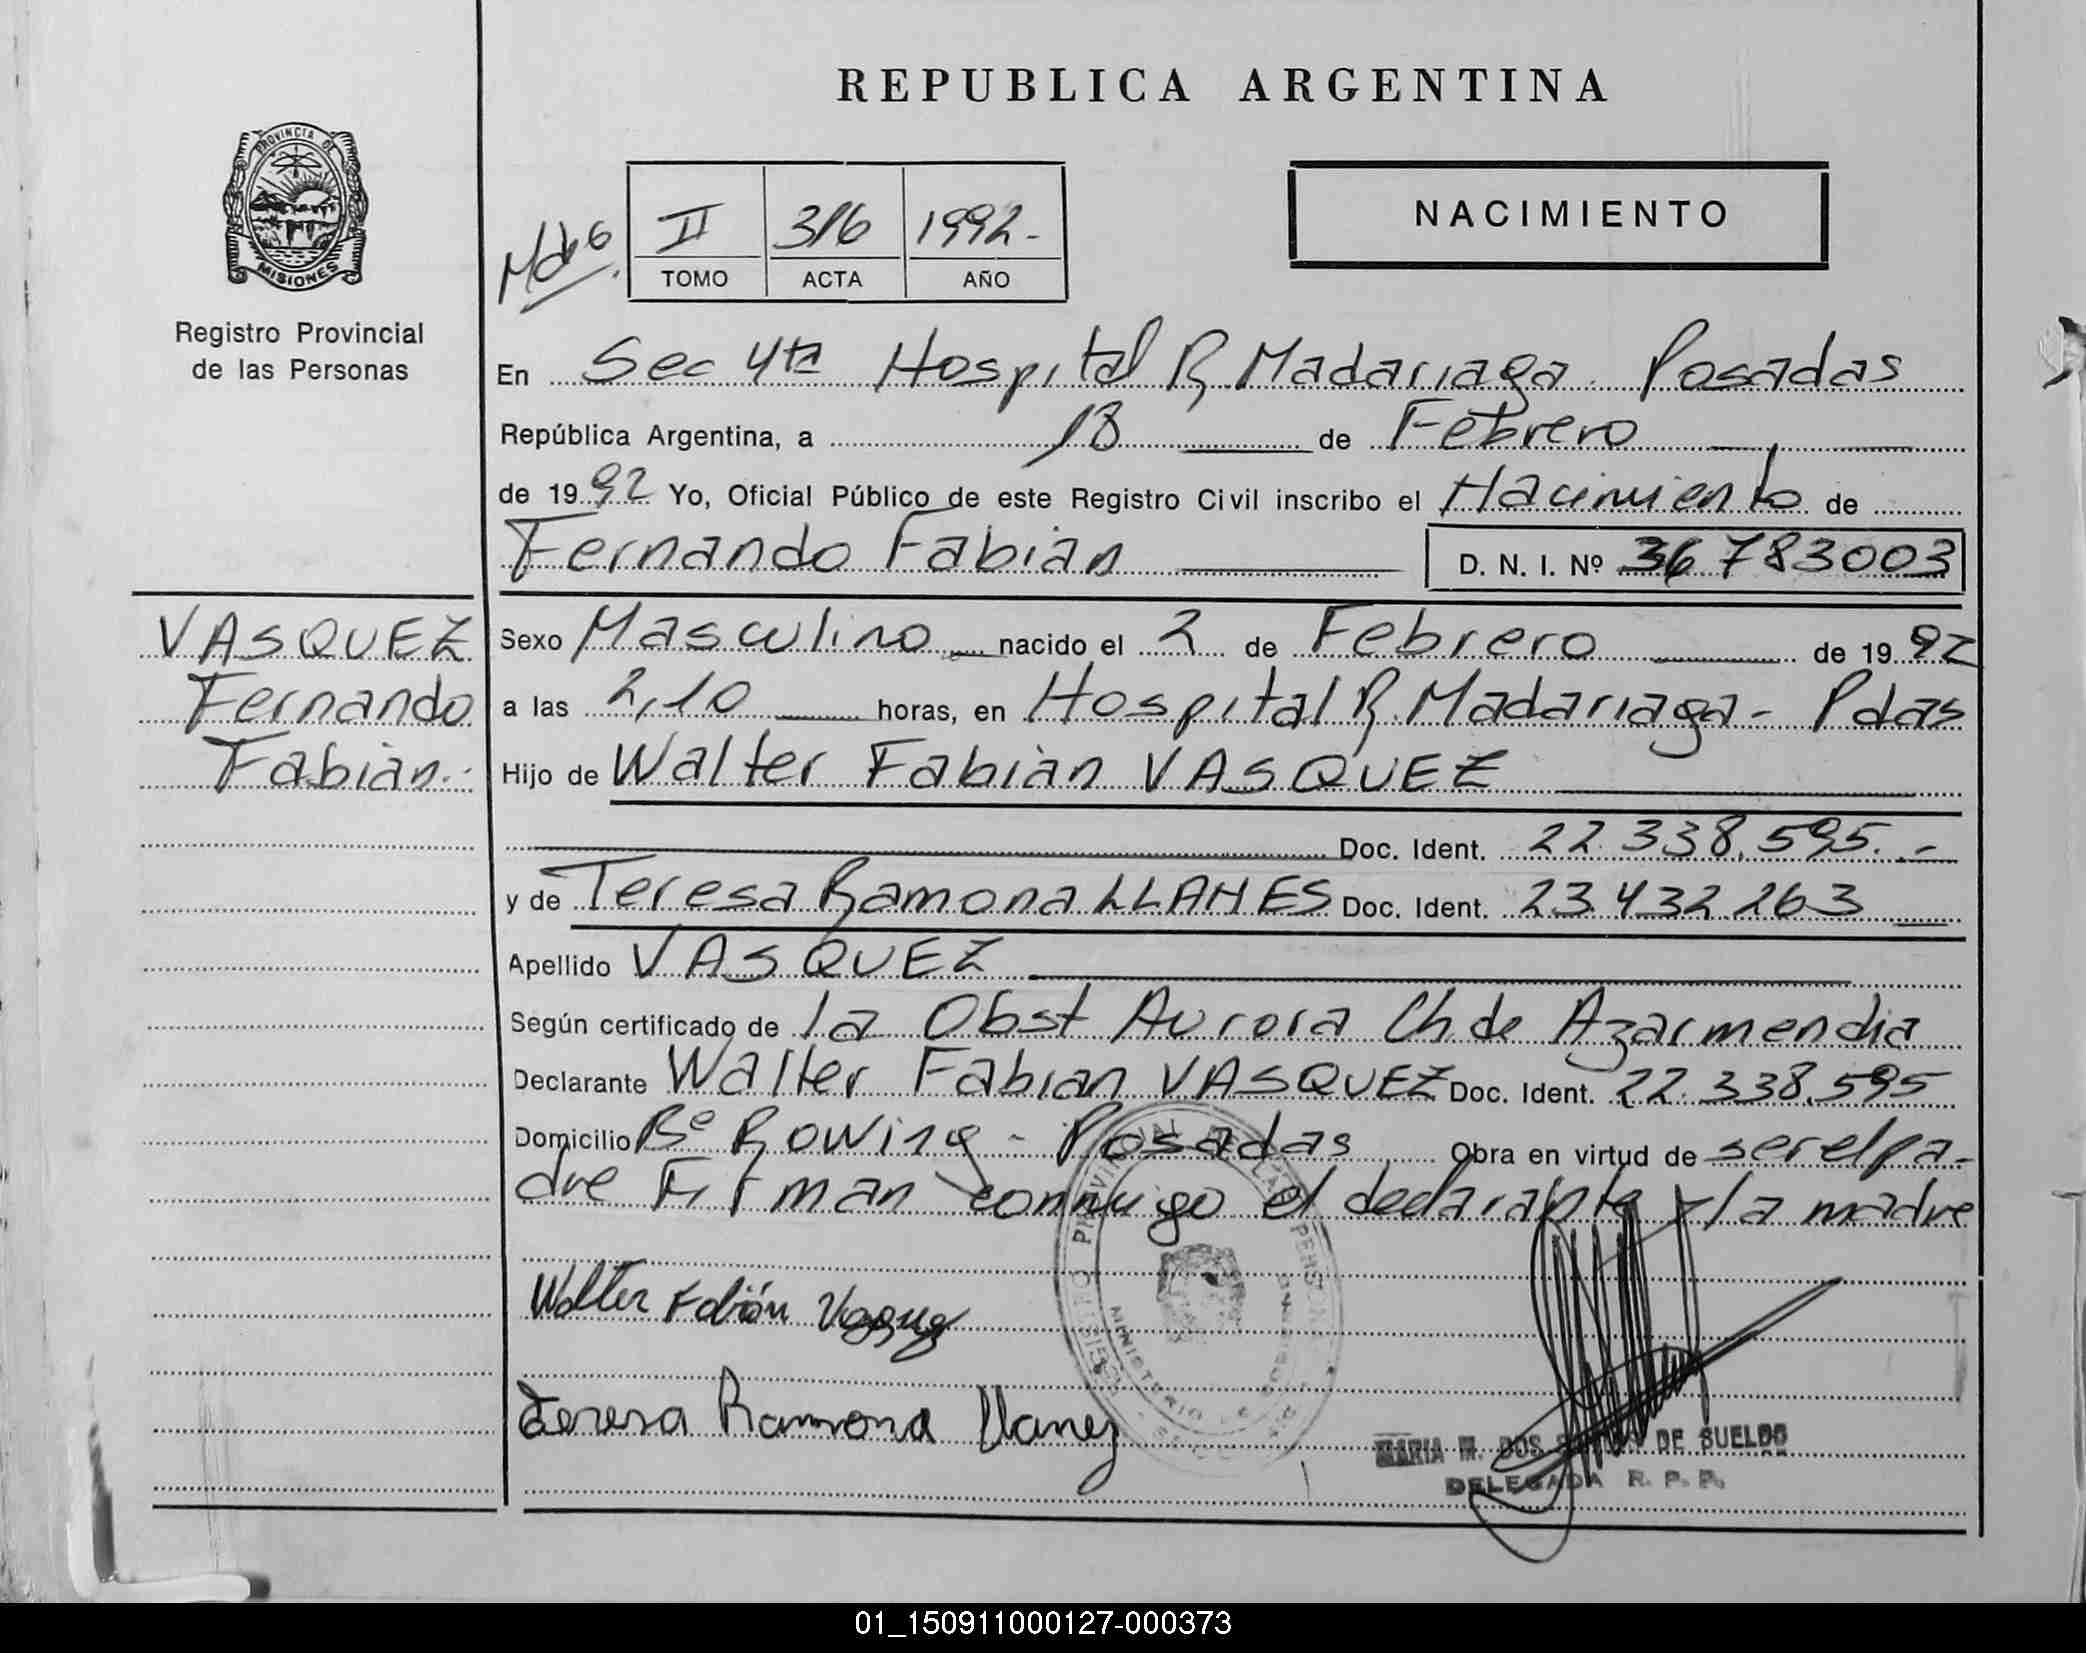 REPUBLICA ARGENTINA
PROVINCIA DE
MISIONES
Registro Provincial
de las Personas
II 316 1992.-
TOMO ACTA AÑO
NACIMIENTO
En Sec 4ta Hospital R. Madariaga Posadas
República Argentina, a 18 de Febrero
de 1992 Yo, Oficial Público de este Registro Civil inscribo el Nacimiento de
Fernando Fabián D. N. I. Nº 36 783003
VASQUEZ
Fernando
Fabián.-
Sexo Masculino nacido el 2 de Febrero de 1992
a las 2,10 horas, en Hospital R. Madariaga - Pdas
Hijo de Walter Fabián VASQUEZ
Doc. Ident. 22.338.595.-
y de Teresa Ramona LLANES Doc. Ident. 23.432.263
Apellido VASQUEZ
Según certificado de la Obst Aurora Ch de Azarmendia
Declarante Walter Fabian VASQUEZ Doc. Ident. 22.338.595
Domicilio Bº Rowing - Posadas Obra en virtud de ser el pa-
dre Firman conmigo el declarante y la madre
Walter Fabián Vasquez
Teresa Ramona Llanez
MARIA M. DOS DE SUELDO
DELEGADA R. P. P.
01_150911000127-000373